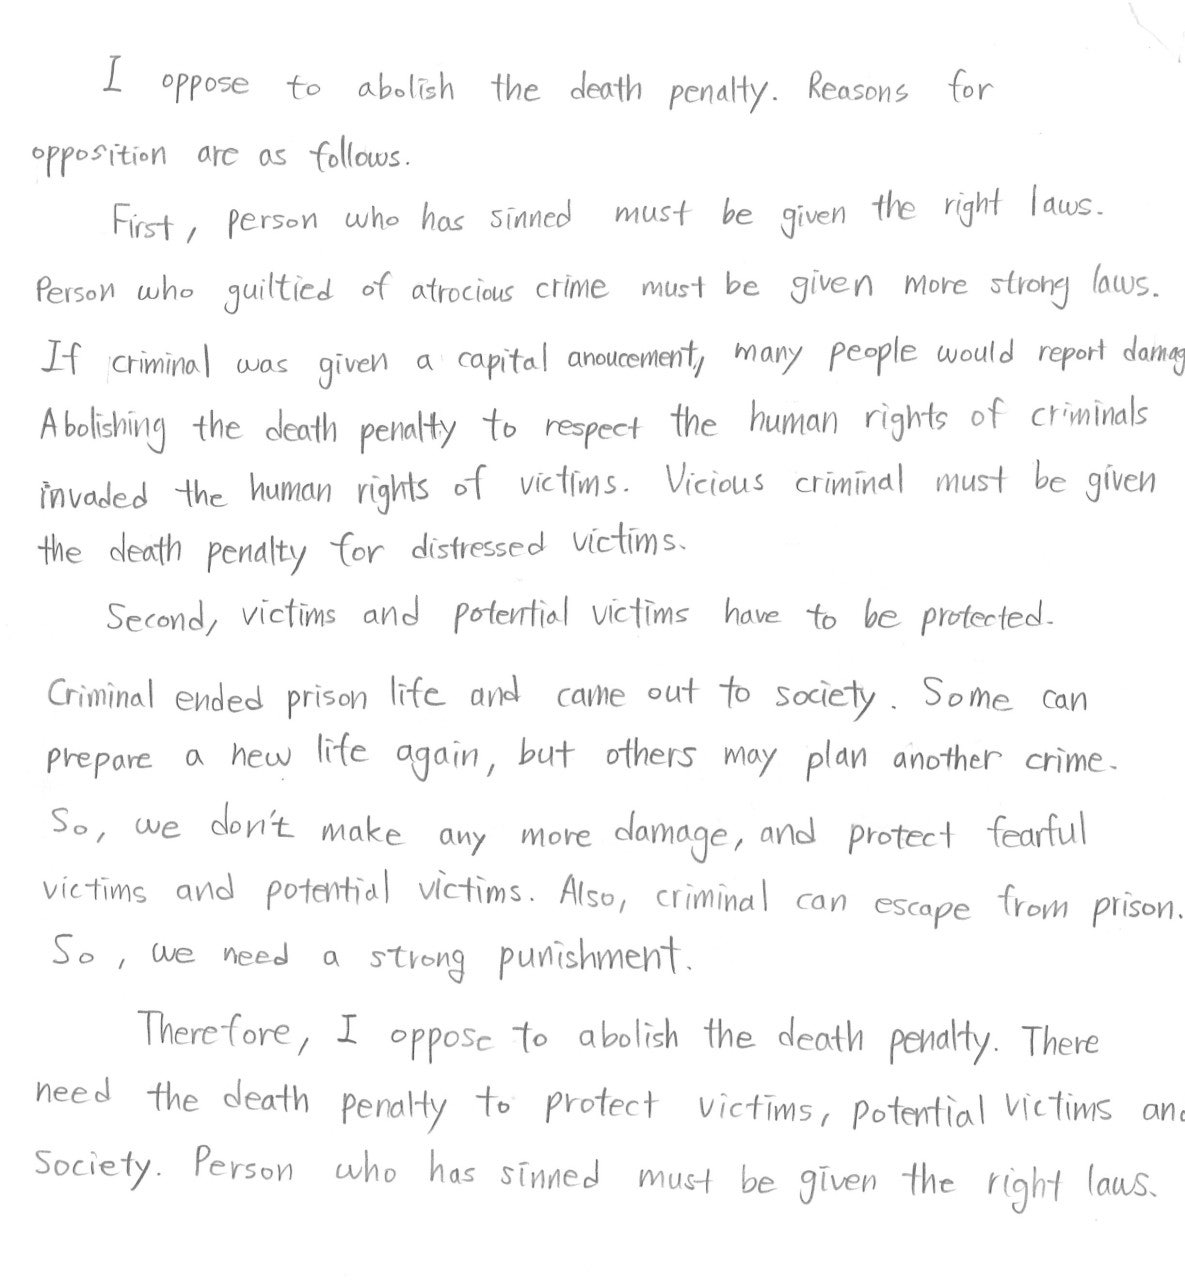 I oppose to abolish the death penalty. Reasons for
opposition are as follows.
First, person who has sinned must be given the right laws.
Person who guiltied of atrocious crime must be given more strong laws.
If criminal was given a capital anoucement, many people would report damag
Abolishing the death penalty to respect the human rights of criminals
invaded the human rights of victims. Vicious criminal must be given
the death penalty for distressed victims.
Second, victims and potential victims have to be protected.
Criminal ended prison life and came out to society. Some can
prepare a new life again, but others may plan another crime.
So, we don't make any more damage, and protect fearful
victims and potential victims. Also, criminal can escape from prison.
So, we need a strong punishment.
Therefore, I oppose to abolish the death penalty. There
need the death penalty to protect victims, potential victims and
Society. Person who has sinned must be given the right laws.